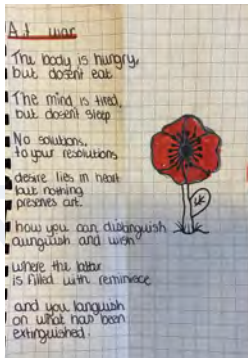 At war
The body is hungry,
but dosent eat
The mind is tired,
but dosent sleep
No solutions,
to your resolutions
desire lies in heart
but nothing
preserves art.
how you can distinguish
aunguish and wish
where the latter
is filled with reminiece
and you languish
on what has been
extinguished.